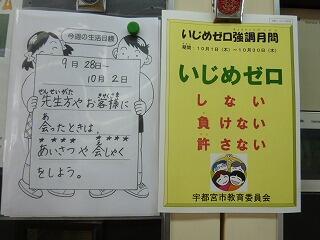 今週の生活目標
9月28日~
10月2日
せんせいがた きゃくさま
先生方やお客様に
あ
会ったときは、
あいさつや会しゃく
をしよう。
いじめゼロ強調月間
期間:10月1日(木)~10月30日(金)
いじめゼロ
しない
負けない
許さない
宇都宮市教育委員会